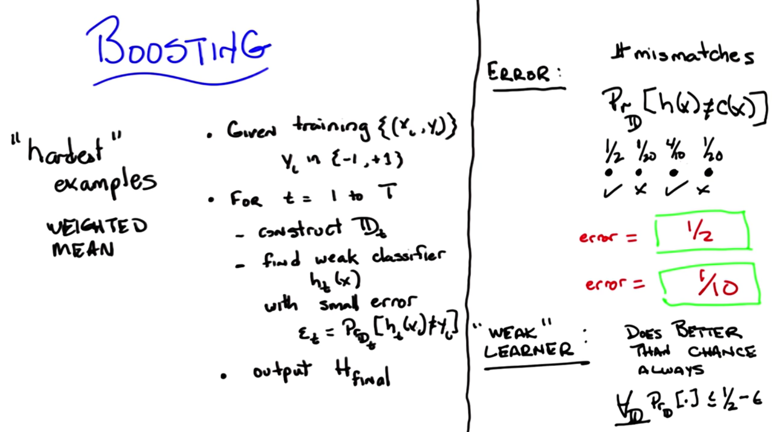 BOOSTING
"hardest"
examples
WEIGHTED
MEAN
• Given training {(xᵢ, yᵢ)}
yᵢ in {-1, +1}
• FOR t = 1 to T
- construct 𝔻ₜ
- find weak classifier
hₜ(x)
with small error
εₜ = Pr_𝔻ₜ [hₜ(xᵢ) ≠ yᵢ]
• output H_final
ERROR:
# mismatches
Pr_𝔻 [h(x) ≠ c(x)]
1/2 1/20 4/10 1/20
• • • •
✓ x ✓ x
error = 1/2
error = 1/10
"WEAK"
LEARNER :
DOES BETTER
THAN CHANCE
ALWAYS
∀_𝔻 Pr_𝔻 [·] ≤ 1/2 - ϵ